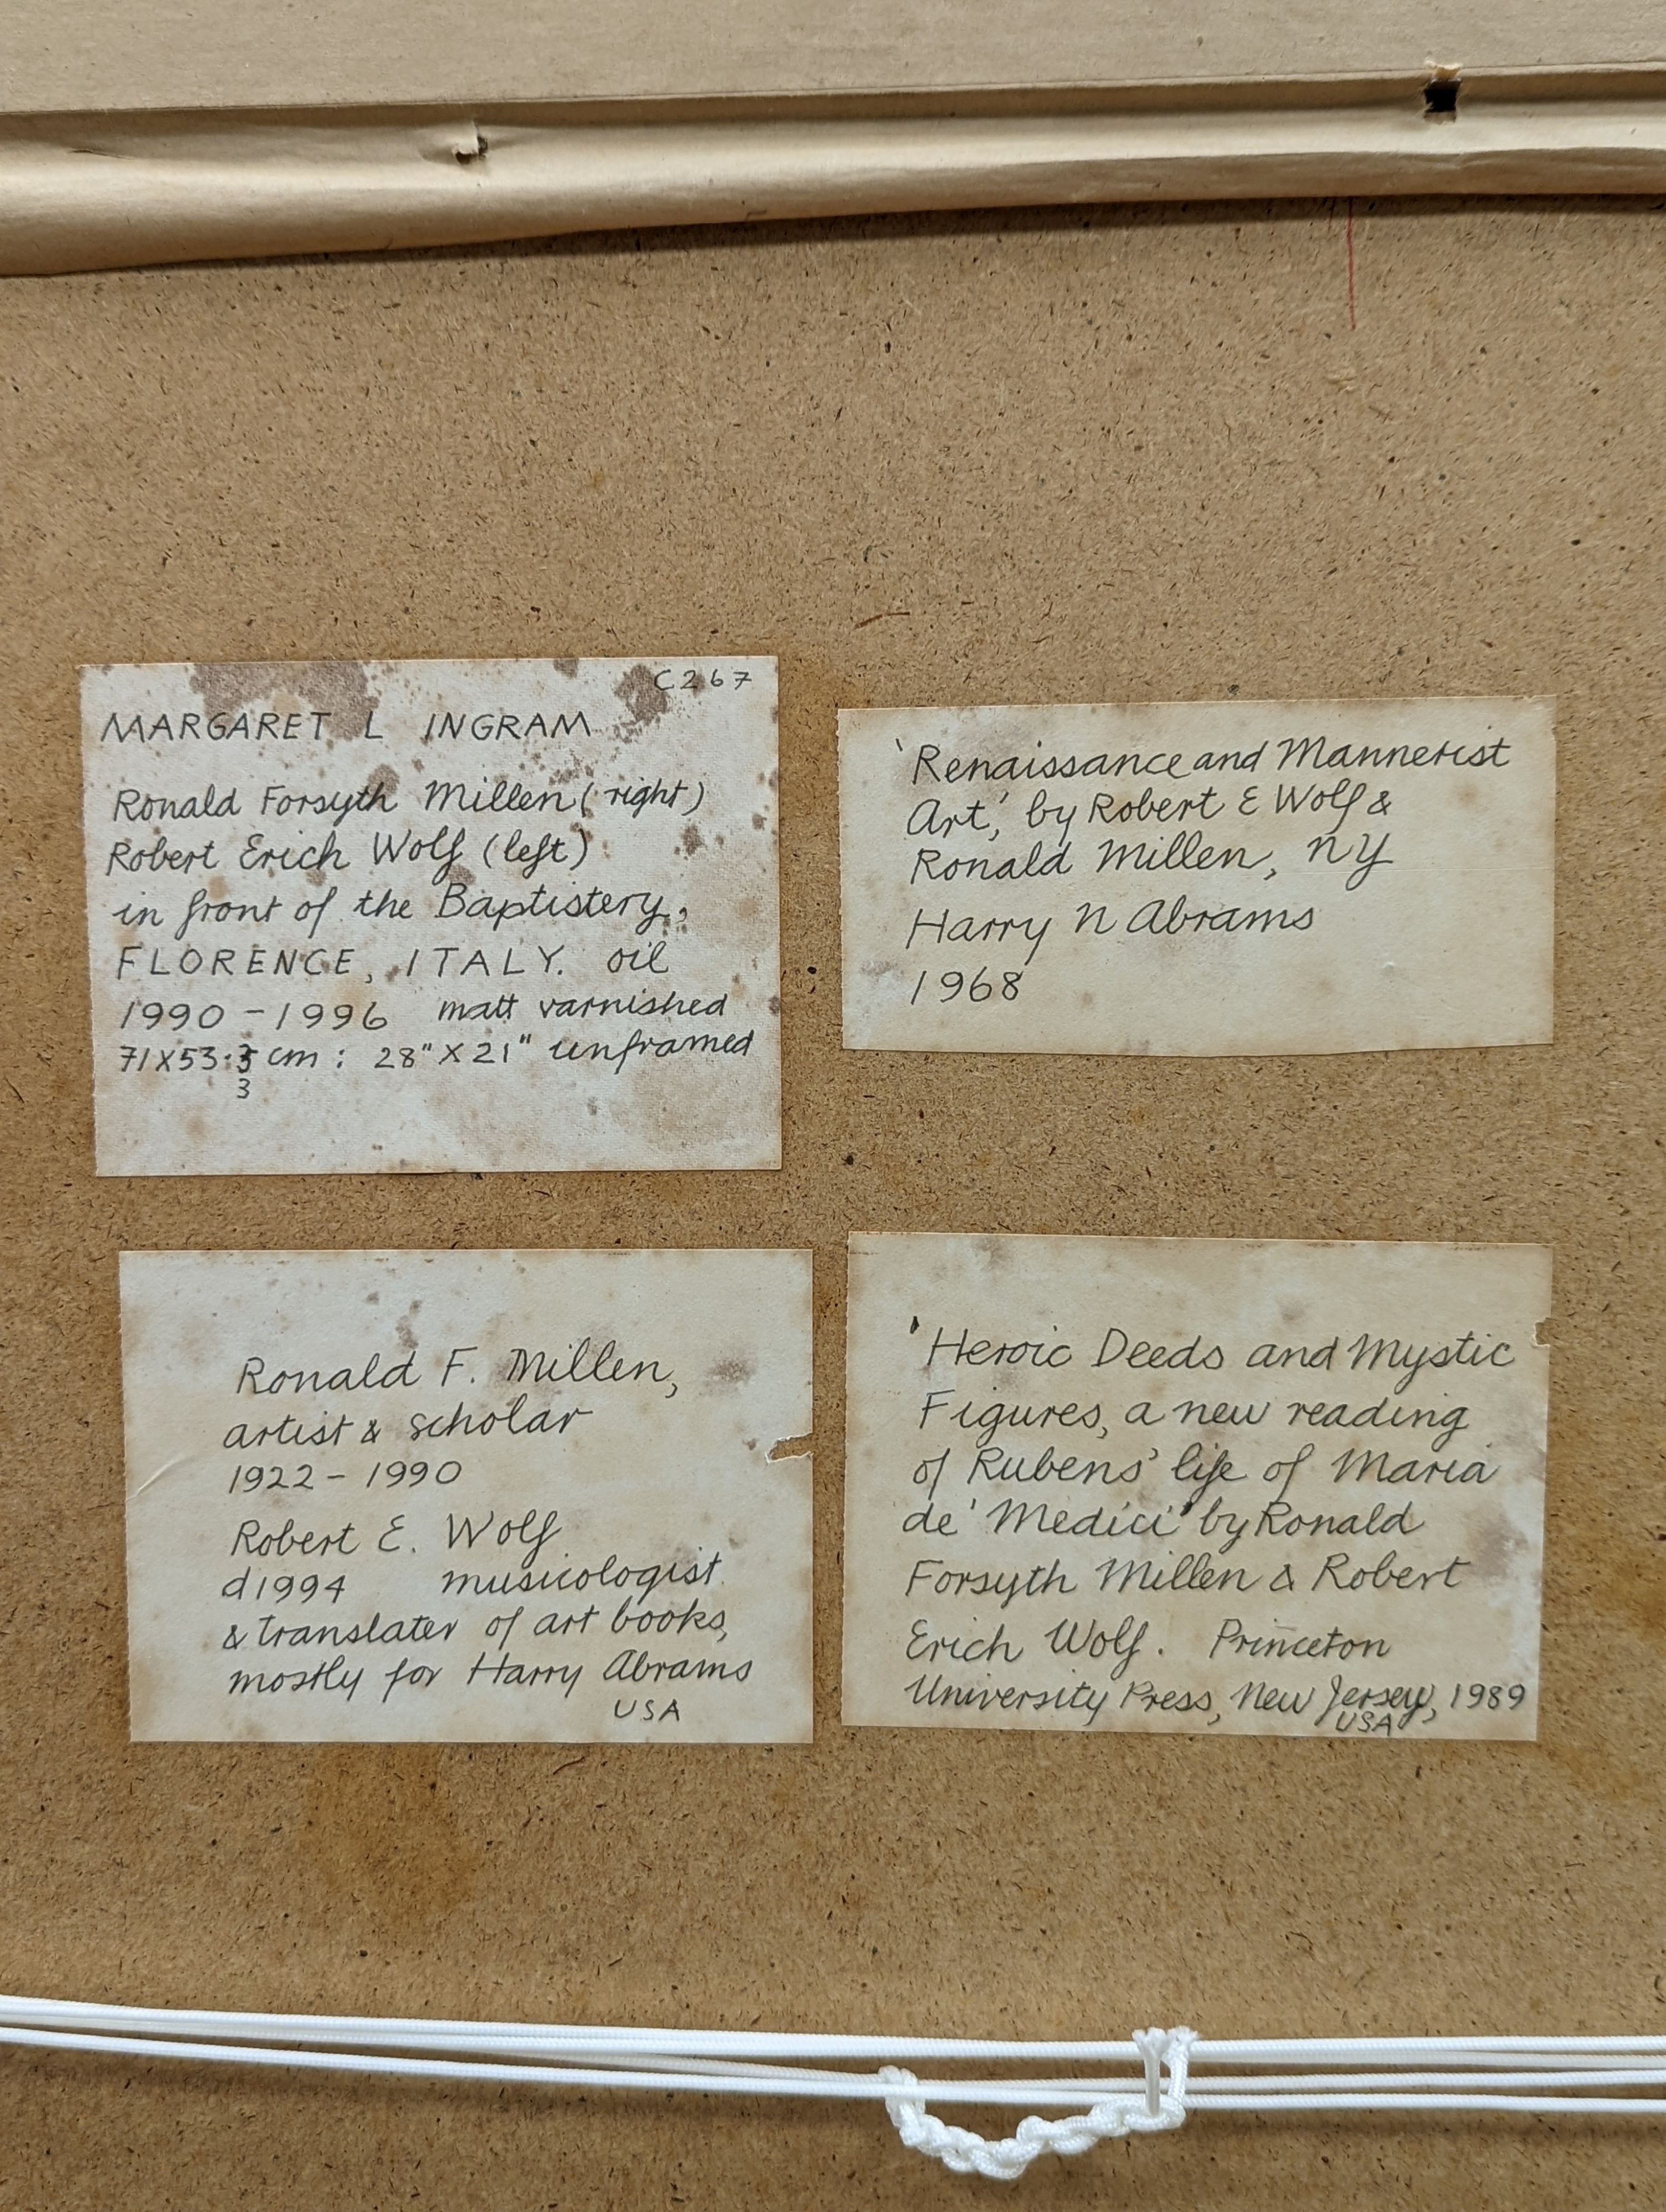 C267
MARGARET L INGRAM
Ronald Forsyth Millen (right)
Robert Erich Wolf (left)
in front of the Baptistery,
FLORENCE, ITALY. oil
1990 - 1996 matt varnished
71X53.3 cm : 28" X 21" unframed
3
'Renaissance and Mannerist
Art', by Robert E Wolf &
Ronald Millen, NY
Harry N Abrams
1968
Ronald F. Millen,
artist & scholar
1922 - 1990
Robert E. Wolf
d1994 musicologist
& translater of art books,
mostly for Harry Abrams
USA
'Heroic Deeds and Mystic
Figures, a new reading
of Rubens' life of Maria
de' Medici' by Ronald
Forsyth Millen & Robert
Erich Wolf. Princeton
University Press, New Jersey, 1989
USA